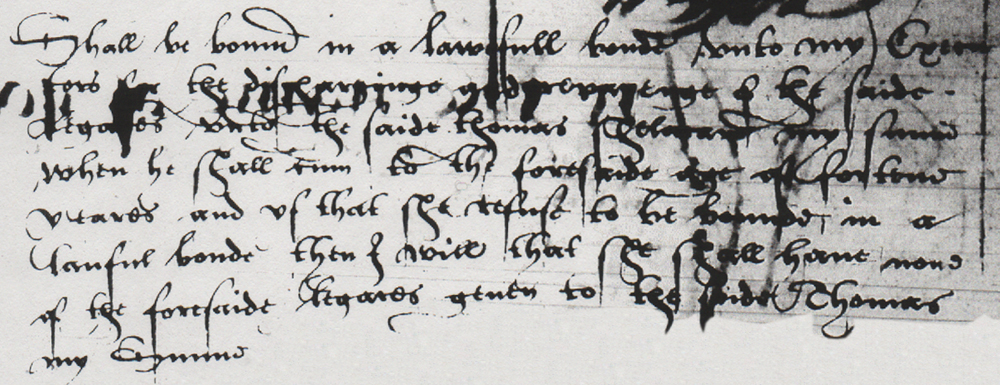 Shall be bound in a lawfull bonde vnto my Execu
tors for the discharginge and of the saide
legaces vnto the saide thomas my sunne
when he shall cum to the foresaide age of fortene
yeares and yf that she refuse to be bounde in a
lauful bonde then I will that she shall haue none
of the foresaide legaces geuen to the saide Thomas
my Sunne